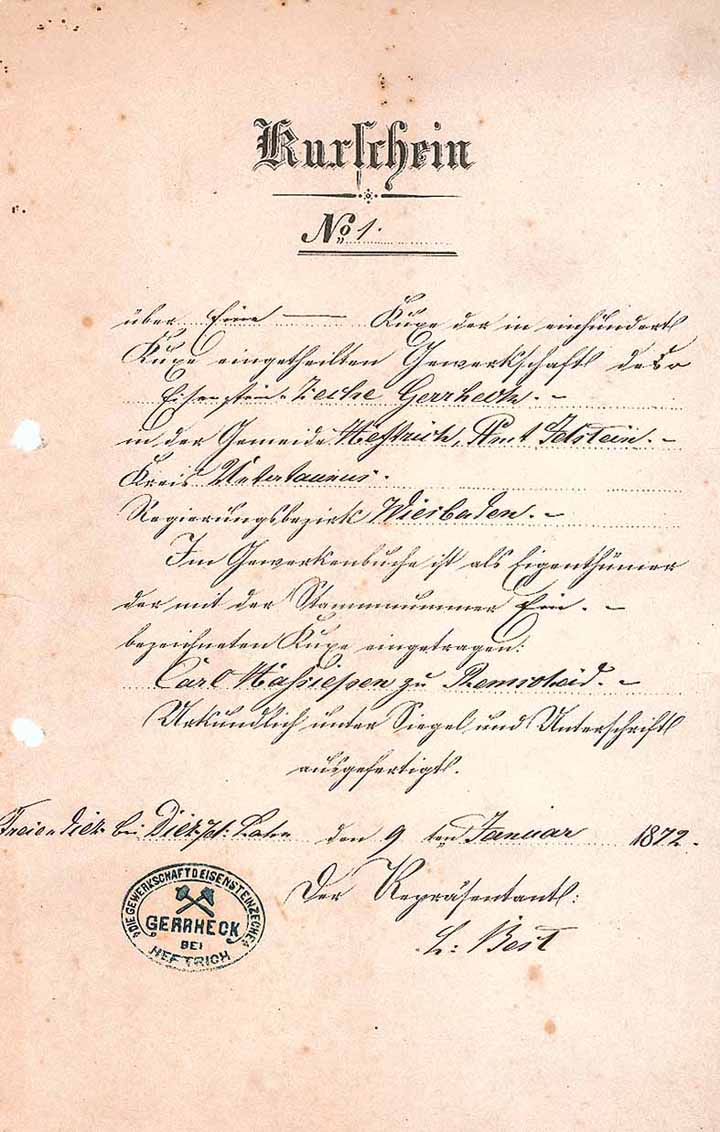 Kuxschein
No 1.
über Eine — Kuxe der in einhundert
Kuxe eingetheilten Gewerkschaft der
Eisenstein-Zeche Gerrheck. –
in der Gemeinde Heftrich, Amt Idstein. –
Kreis Untertaunus.
Regierungsbezirk Wiesbaden. –
Im Gewerkenbuche ist als Eigenthümer
der mit der Stammnummer Ein. –
bezeichneten Kuxe eingetragen:
Carl Hassiepen zu Remscheid. –
Urkundlich unter Siegel und Unterschrift
ausgefertigt.
Freiendiez bei Diez Lahn den 9 ten Januar 1872.
Der Repräsentant:
L: Best
DIE GEWERKSCHAFT D EISENSTEINZECHE
„GERRHECK"
BEI
HEFTRICH